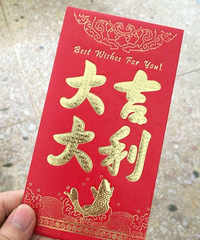 Best Wishes For You!
大吉
大利